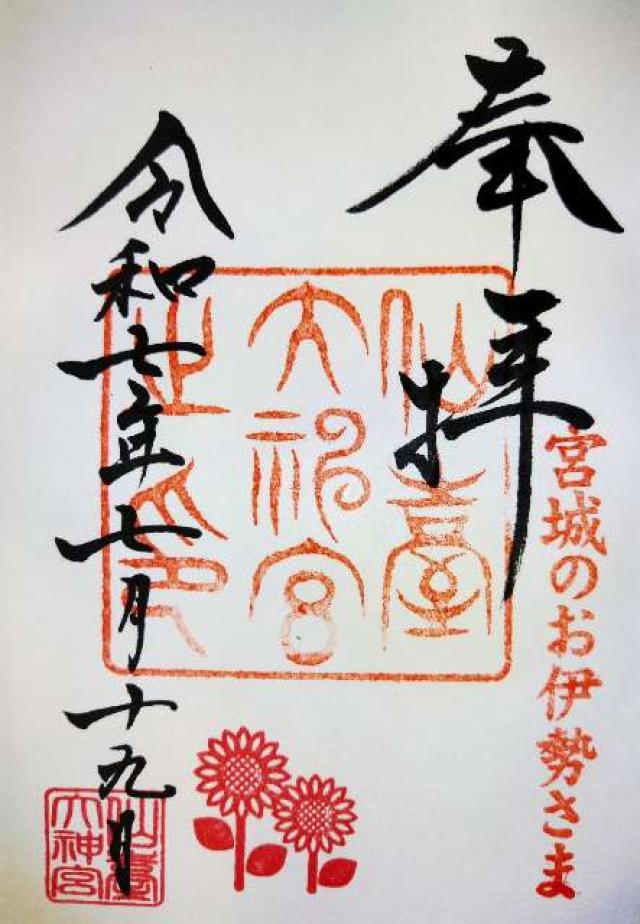 奉拝
宮城のお伊勢さま
仙臺
大神宮
之印
令和七年七月十九日
仙臺
大神宮